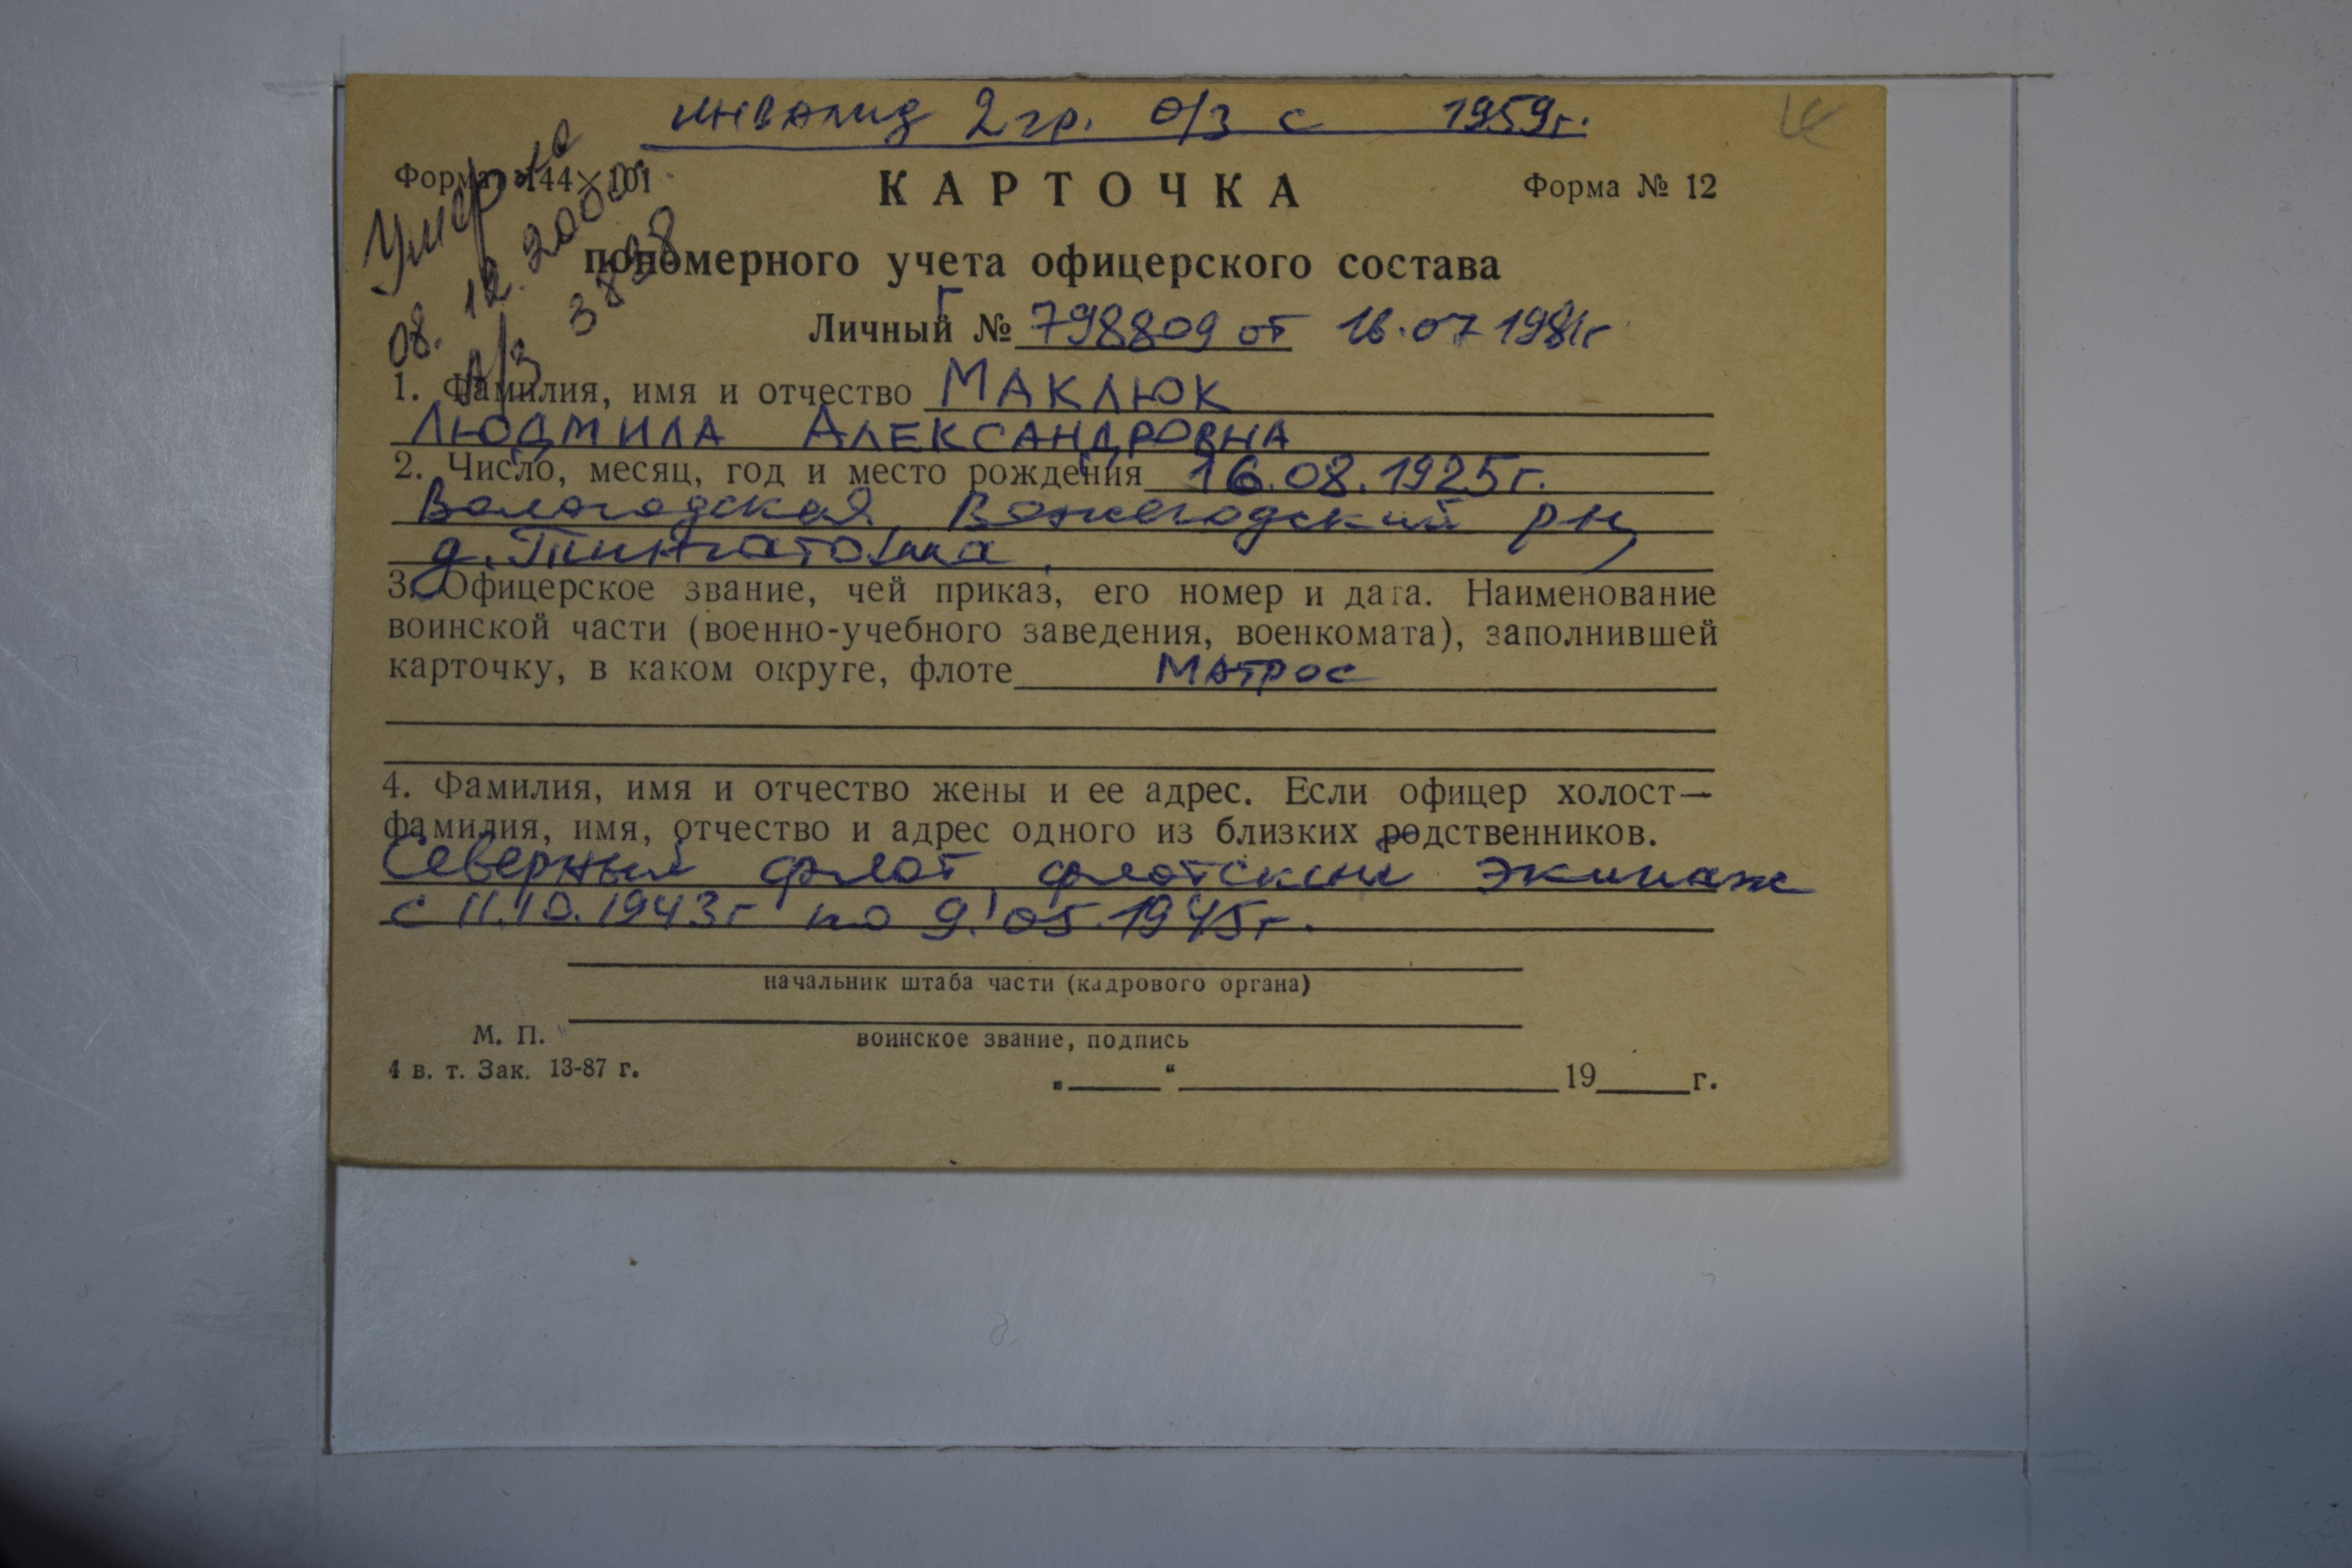 инвалид 2 гр. о/з с 1959г.
Формат 144×101
КАРТОЧКА
Форма № 12
Умерла
08. 12. 2000г.
а/з 3828
пономерного учета офицерского состава
Г
Личный № 798809 от 16.07 1981г
1. Фамилия, имя и отчество МАКЛЮК
ЛЮДМИЛА АЛЕКСАНДРОВНА
2. Число, месяц, год и место рождения 16.08.1925г.
Вологодская, Вожегодский р-н,
д.
3. Офицерское звание, чей приказ, его номер и дата. Наименование
воинской части (военно-учебного заведения, военкомата), заполнившей
карточку, в каком округе, флоте МАТРОС
4. Фамилия, имя и отчество жены и ее адрес. Если офицер холост—
фамилия, имя, отчество и адрес одного из близких родственников.
Северный флот, флотский экипаж
с 11.10.1943г по 9.05.1945г.
начальник штаба части (кадрового органа)
М. П.
воинское звание, подпись
4 в. т. Зак. 13-87 г.
„ “ 19 г.